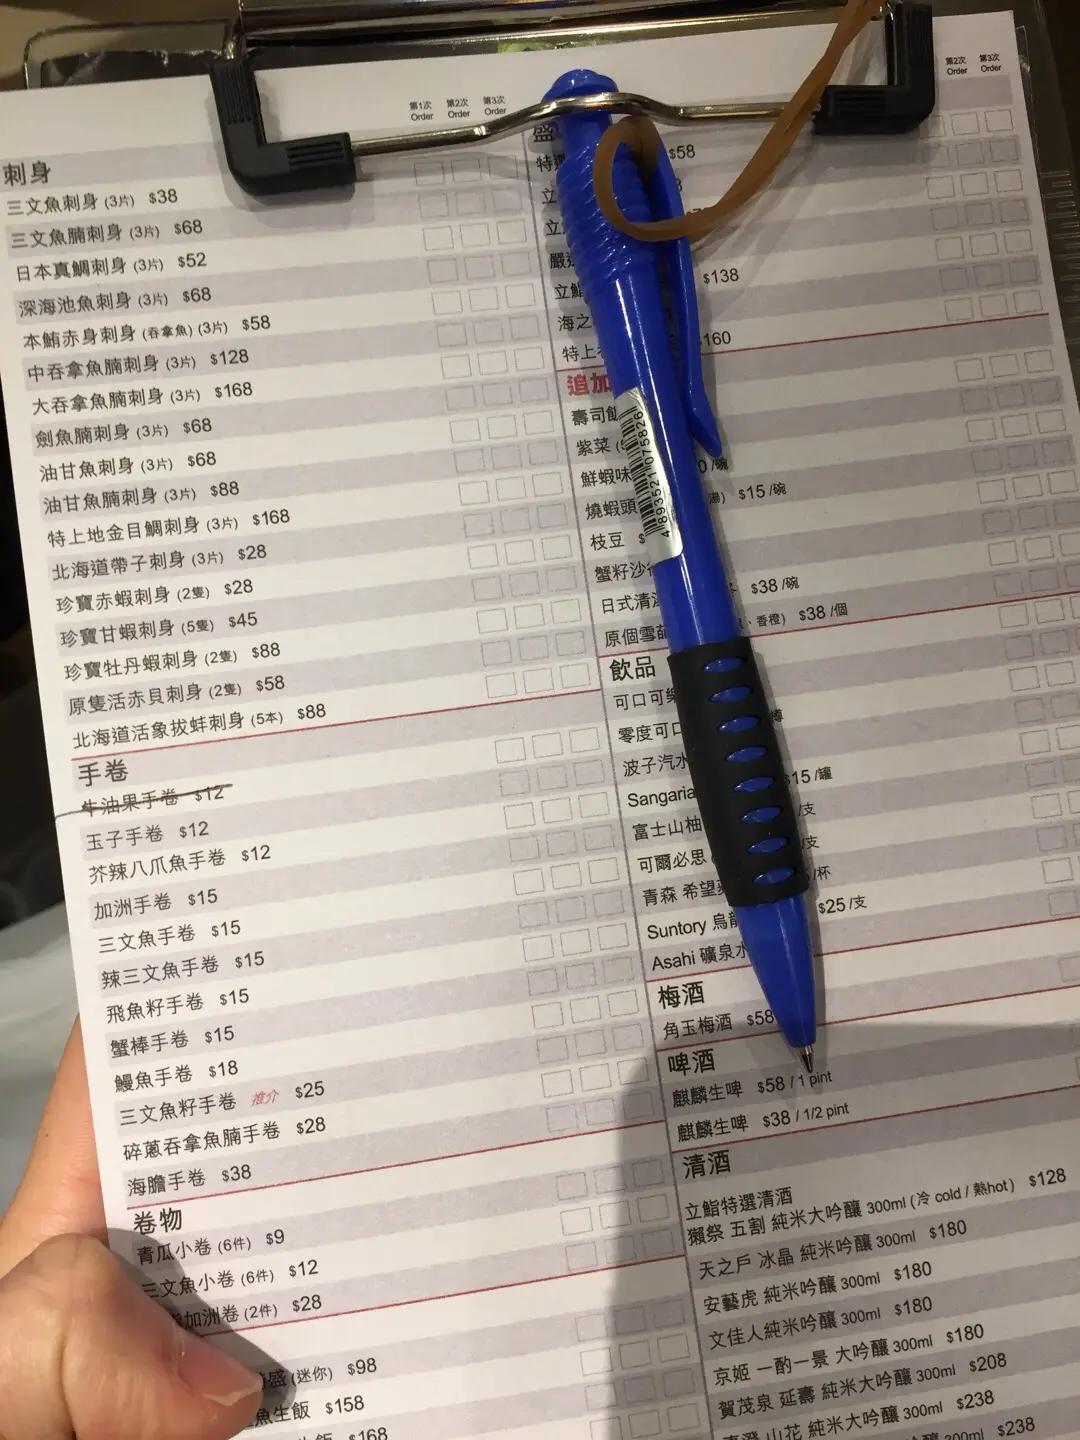 第1次 Order 第2次 Order 第3次 Order
刺身
三文魚刺身 (3片) $38
三文魚腩刺身 (3片) $68
日本真鯛刺身 (3片) $52
深海池魚刺身 (3片) $68
本鮪赤身刺身 (吞拿魚) (3片) $58
中吞拿魚腩刺身 (3片) $128
大吞拿魚腩刺身 (3片) $168
劍魚腩刺身 (3片) $68
油甘魚刺身 (3片) $68
油甘魚腩刺身 (3片) $88
特上地金目鯛刺身 (3片) $168
北海道帶子刺身 (3片) $28
珍寶赤蝦刺身 (2隻) $28
珍寶甘蝦刺身 (5隻) $45
珍寶牡丹蝦刺身 (2隻) $88
原隻活赤貝刺身 (2隻) $58
北海道活象拔蚌刺身 (5本) $88
手卷
牛油果手卷 $12
玉子手卷 $12
芥辣八爪魚手卷 $12
加洲手卷 $15
三文魚手卷 $15
辣三文魚手卷 $15
飛魚籽手卷 $15
蟹棒手卷 $15
鰻魚手卷 $18
三文魚籽手卷 推介 $25
碎蔥吞拿魚腩手卷 $28
海膽手卷 $38
卷物
青瓜小卷 (6件) $9
三文魚小卷 (6件) $12
加洲卷 (2件) $28
盛 (迷你) $98
魚生飯 $158
生飯 $168
第2次 Order 第3次 Order
盛
特 $58
立
立
嚴
立鮨 $138
海之
特上 $160
追加
壽司飯
紫菜
鮮蝦味 /碗
燒蝦頭 湯) $15 /碗
枝豆 $
蟹籽沙
日式清 $38 /碗
原個雪葩 、香橙) $38 /個
4 893521 075826
飲品
可口可樂
零度可口 樽
波子汽水
Sangaria $15 /罐
富士山柚 /支
可爾必思 /支
青森 希望 /杯
Suntory 烏龍 $25 /支
Asahi 礦泉水
梅酒
角玉梅酒 $58
啤酒
麒麟生啤 $58 / 1 pint
麒麟生啤 $38 / 1/2 pint
清酒
立鮨特選清酒
獺祭 五割 純米大吟釀 300ml (冷 cold / 熱hot) $128
天之戶 冰晶 純米吟釀 300ml $180
安藝虎 純米吟釀 300ml $180
文佳人純米吟釀 300ml $180
京姬 一酌一景 大吟釀 300ml $180
賀茂泉 延壽 純米大吟釀 300ml $208
山花 純米大吟釀 300ml $238
300ml $238